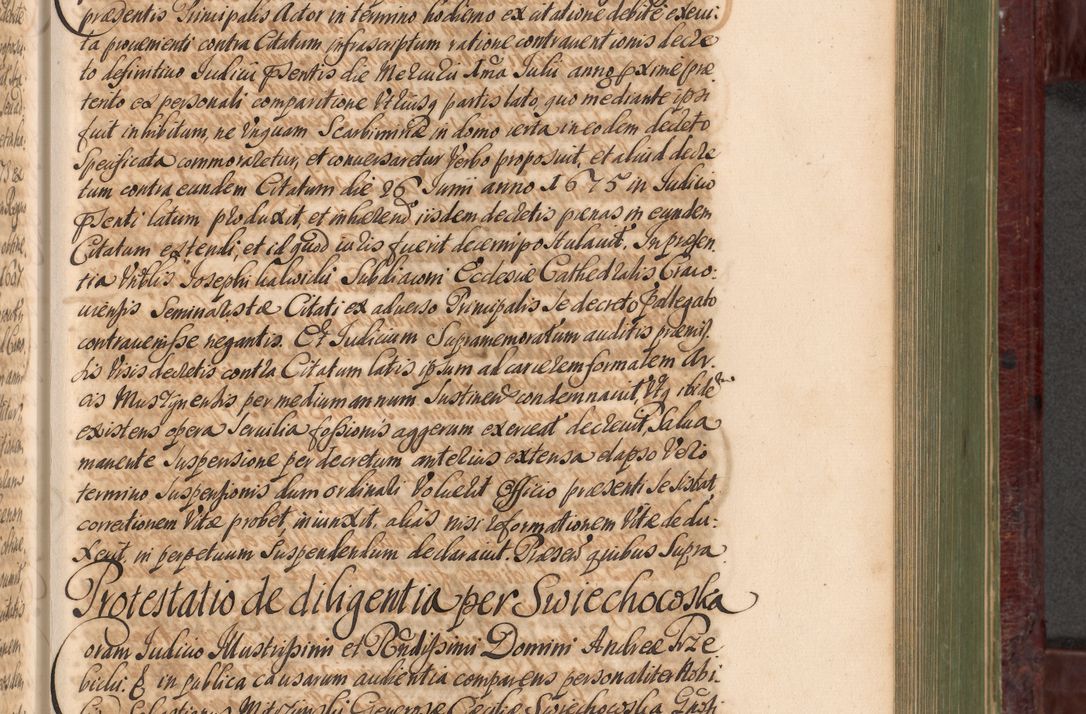 præsentis Principalis Actor in termino hodierno ex citatione debite execu-
ta provenienti contra Citatum infrascriptum ratione contraventionis decre
to definitivo Iudicii psentis die Mercurii 1ma Iulii anno pxime præ
tento ex personali comparitione Utriusq partis lato, quo mediante ipsi
fuit inhibitum, ne Unquam Scarbimiriæ in domo certa in eodem decreto
Specificata commoraretur, et conversaretur Verbo proposuit, et aliud decre
tum contra eundem Citatum die 26 Iunii anno 1675 in Iudicio
psenti latum produxit, et inhærend iisdem decretis pænas in eundem
Citatum extendi, et id quod iuris fuerit decerni postulavit. In præsen
tia Vrblis Iosephi Subdiaconi Ecclesiæ Cathedralis Craco-
viensis Seminaristæ Citati ex adverso Principalis se decreto pallegato
contravenisse negantis. Et Iudicium Supramemoratum auditis præmis
sis Visis decretis contra Citatum latis ipsum ad carcerem formalem Ar-
cis Muszynensis per medium annum Sustinend condemnavit, Utq ibidem
existens opera Servilia fossionis aggerum exerceat decrevit, Salva
manente Suspensione per decretum anterius extensa elapso Vero
termino Suspensionis dum ordinari Voluerit Officio præsenti se sistat
correctionem Vitæ probet, iniunxit, alias nisi reformationem Vitæ dedu-
xerit in perpetuum Suspendendum declaravit. Præsen quibus Supra
Protestatio de diligentia per Swiechowska
Coram Iudicio Illustrissimi et Rndissimi Domini Andreæ Trze
bicki. E in publica causarum audientia comparens personaliter Nobi
lis Sebastianus Generosæ Ceciliæ Swiechocska